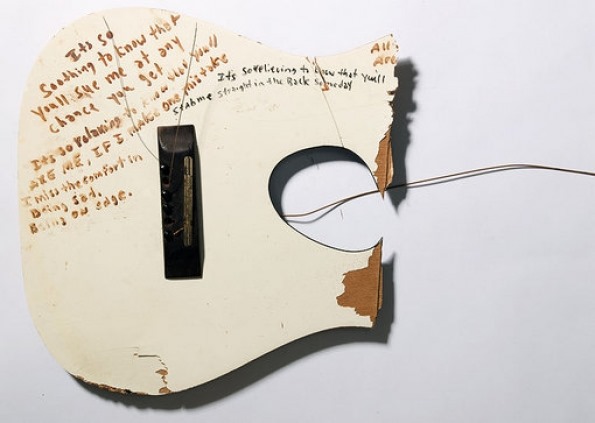 Its so
Soothing to know that
youll sue me at any
chance you get
Its so relaxing to know that youll
ASE ME, IF I make one mistake
Its so relieving to know that youll
stab me straight in the Back someday
I miss the comfort in
Being Sad.
Being on edge.
All
Are